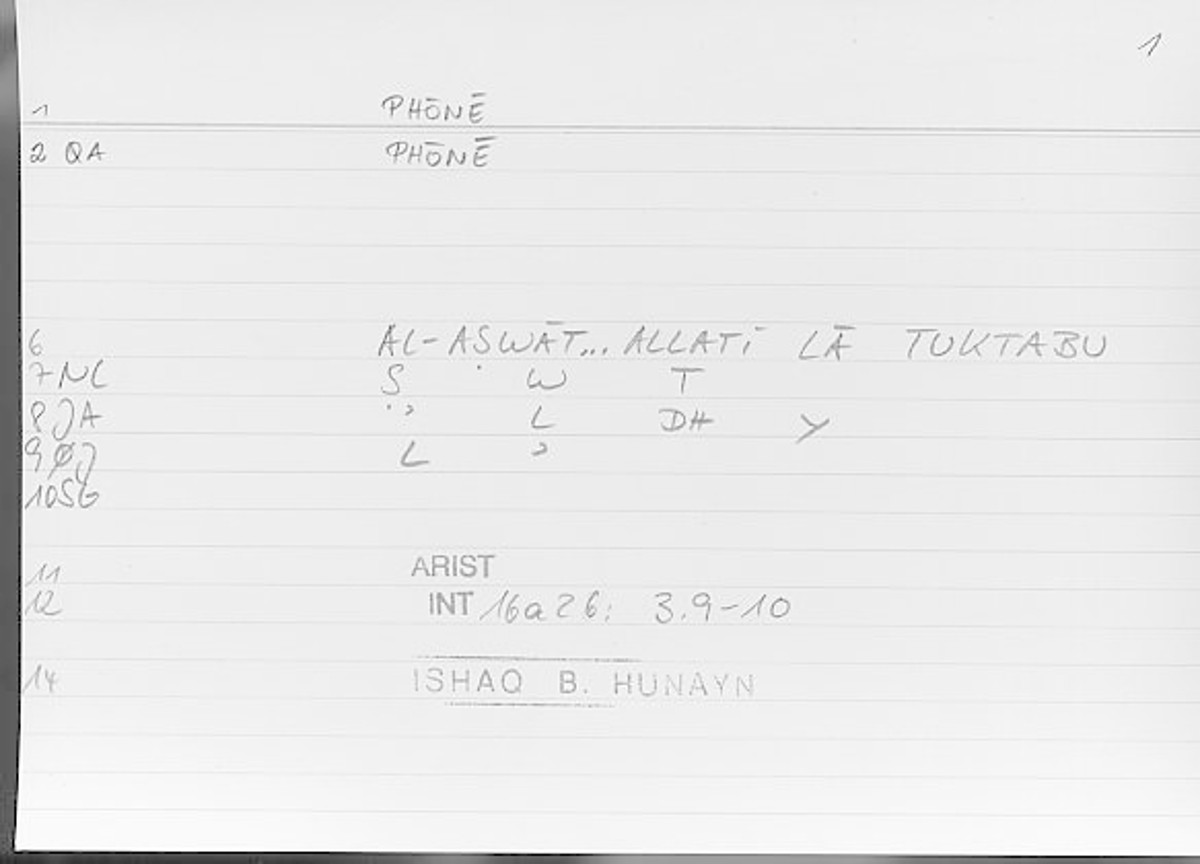 1
1 PHŌNĒ
2 QA PHŌNĒ
6 AL-AṢWĀT... ALLATĪ LĀ TUKTABU
7 NL Ṣ W T
8 JA ʾ L DH Y
9 ØJ L ʾ
10 SG
11 ARIST
12 INT 16a26: 3.9-10
14 ISHAQ B. HUNAYN